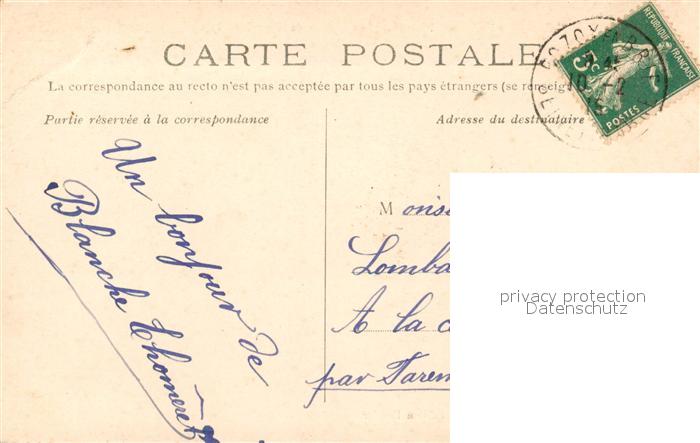 CARTE POSTALE
La correspondance au recto n'est pas acceptée par tous les pays étrangers (se renseig
Partie réservée à la correspondance
Adresse du destinataire
RÉPUBLIQUE FRANÇAISE
5c
POSTES
10 -2
Un bonjour de
Blanche
M onsie
Lomba
A la c
par Tarem
privacy protection
Datenschutz